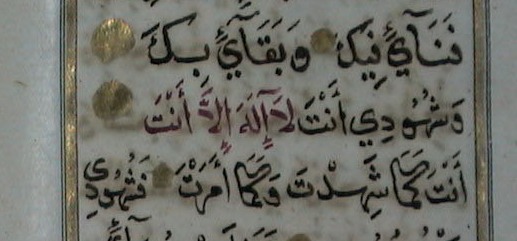 فَنَآئِي فِيكَ وَبَقَآئِي بِكَ
وَشُهُودِي أَنْتَ لَا إِلَهَ إِلَّا أَنْتَ
أَنْتَ كَمَا شَهِدْتَ وَكَمَا أَمَرْتَ فَشُهُودِي